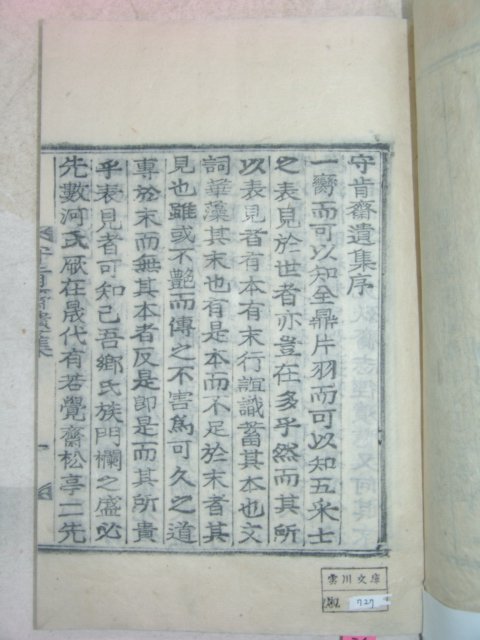 守肯齋遺集序
一臠而可以知全鼎片羽而可以知五采士
之表見於世者亦豈在多乎然而其所
以表見者有本有末行誼識蓄其本也文
詞華藻其末也有是本而不足於末者其
見也雖或不艶而傳之不害爲可久之道
專於末而無其本者反是即是而其所貴
乎表見者可知已吾鄕氏族門欄之盛必
先數河氏厥在晟代有若覺齋松亭二先
守肯齋遺集
一
雲川文庫
727